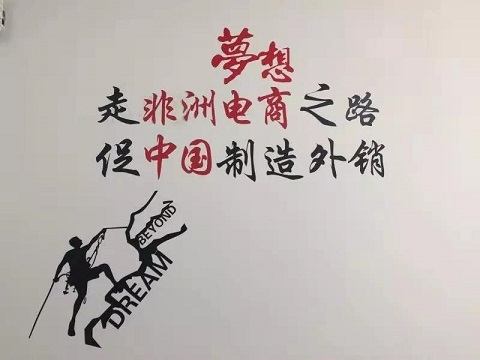 夢想
走非洲电商之路
促中国制造外销
BEYOND
DREAM